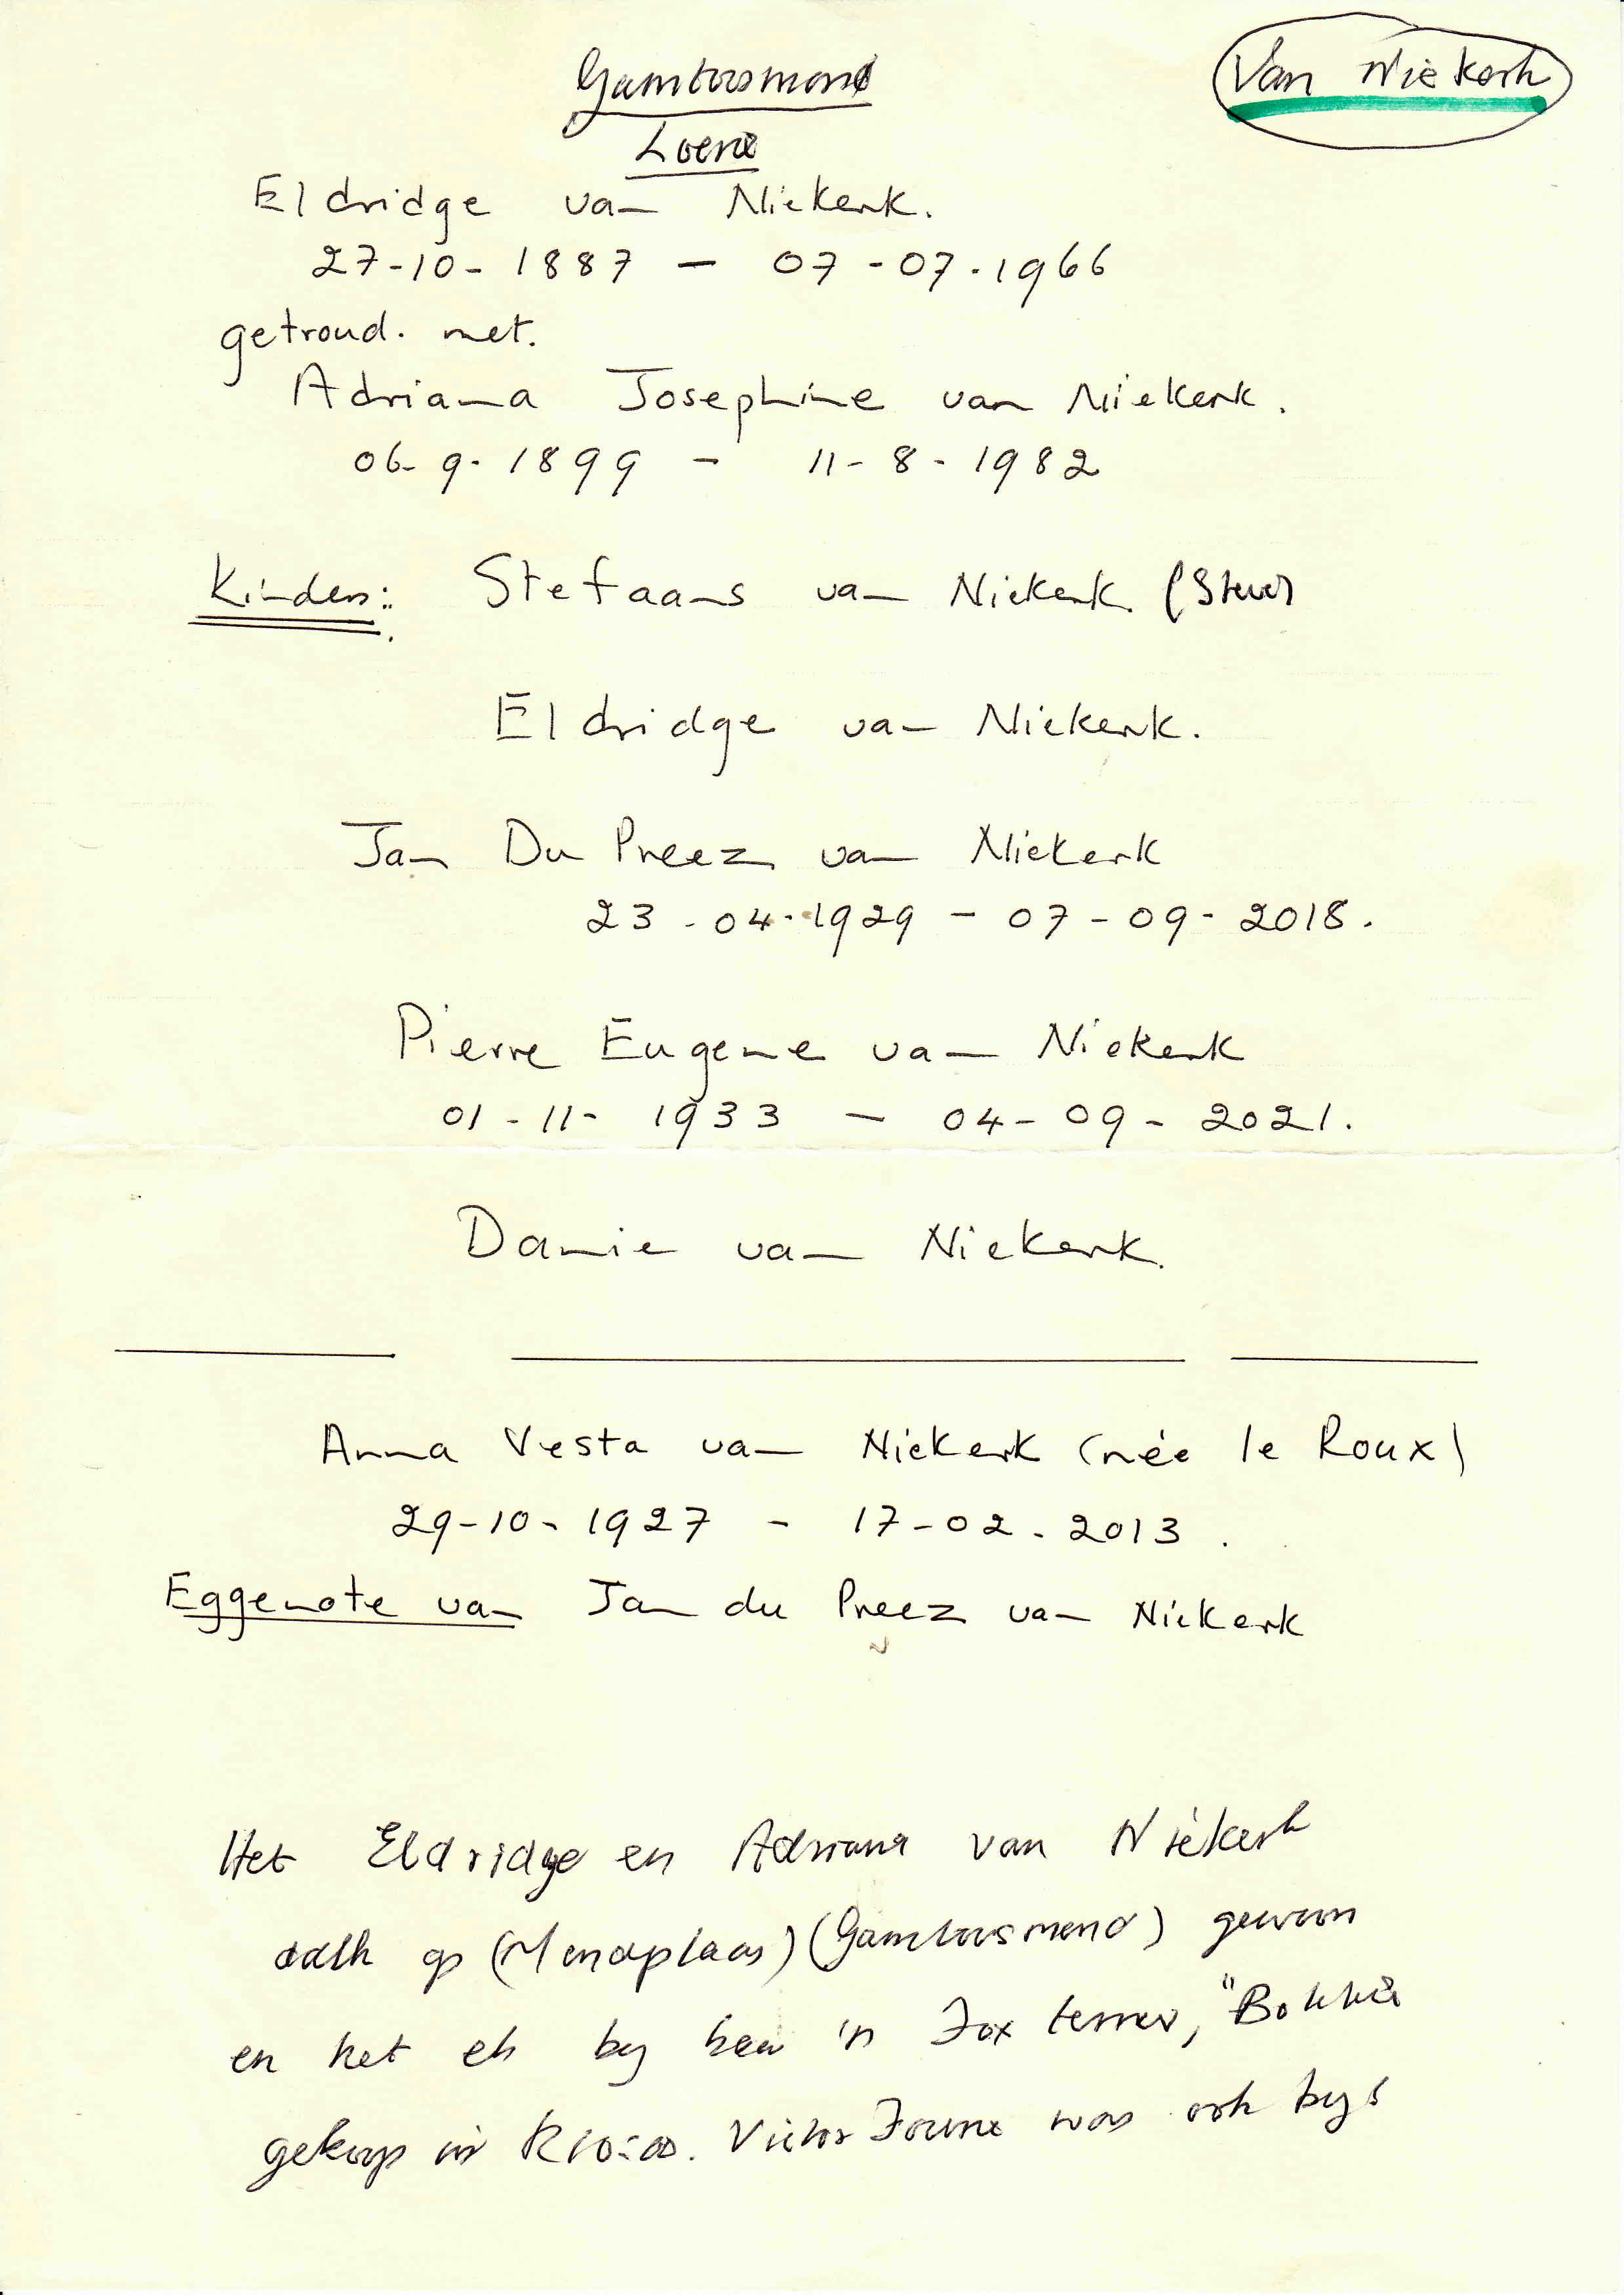 Van Niekerk
Gamtoosmond
Loerie
Eldridge van Niekerk.
27-10-1887 – 07-07-1966
getroud. met.
Adriana Josephine van Niekerk.
06-9-1899 – 11-8-1982
Kinders: Stefaans van Niekerk. (Steve)
Eldridge van Niekerk.
Jan Du Preez van Niekerk
23-04-1929 – 07-09-2018.
Pierre Eugene van Niekerk
01-11-1933 – 04-09-2021.
Danie van Niekerk.
Anna Vesta van Niekerk (née le Roux)
29-10-1927 – 17-02-2013.
Eggenote van Jan du Preez van Niekerk
Het Eldridge en Adriana van Niekerk
dalk op (Mondplaas) (Gamtoosmond) gewoon
en het ek by hom 'n Fox terrier, "Bokkie
gekoop vir R10:00. Victor Fourie was ook by!